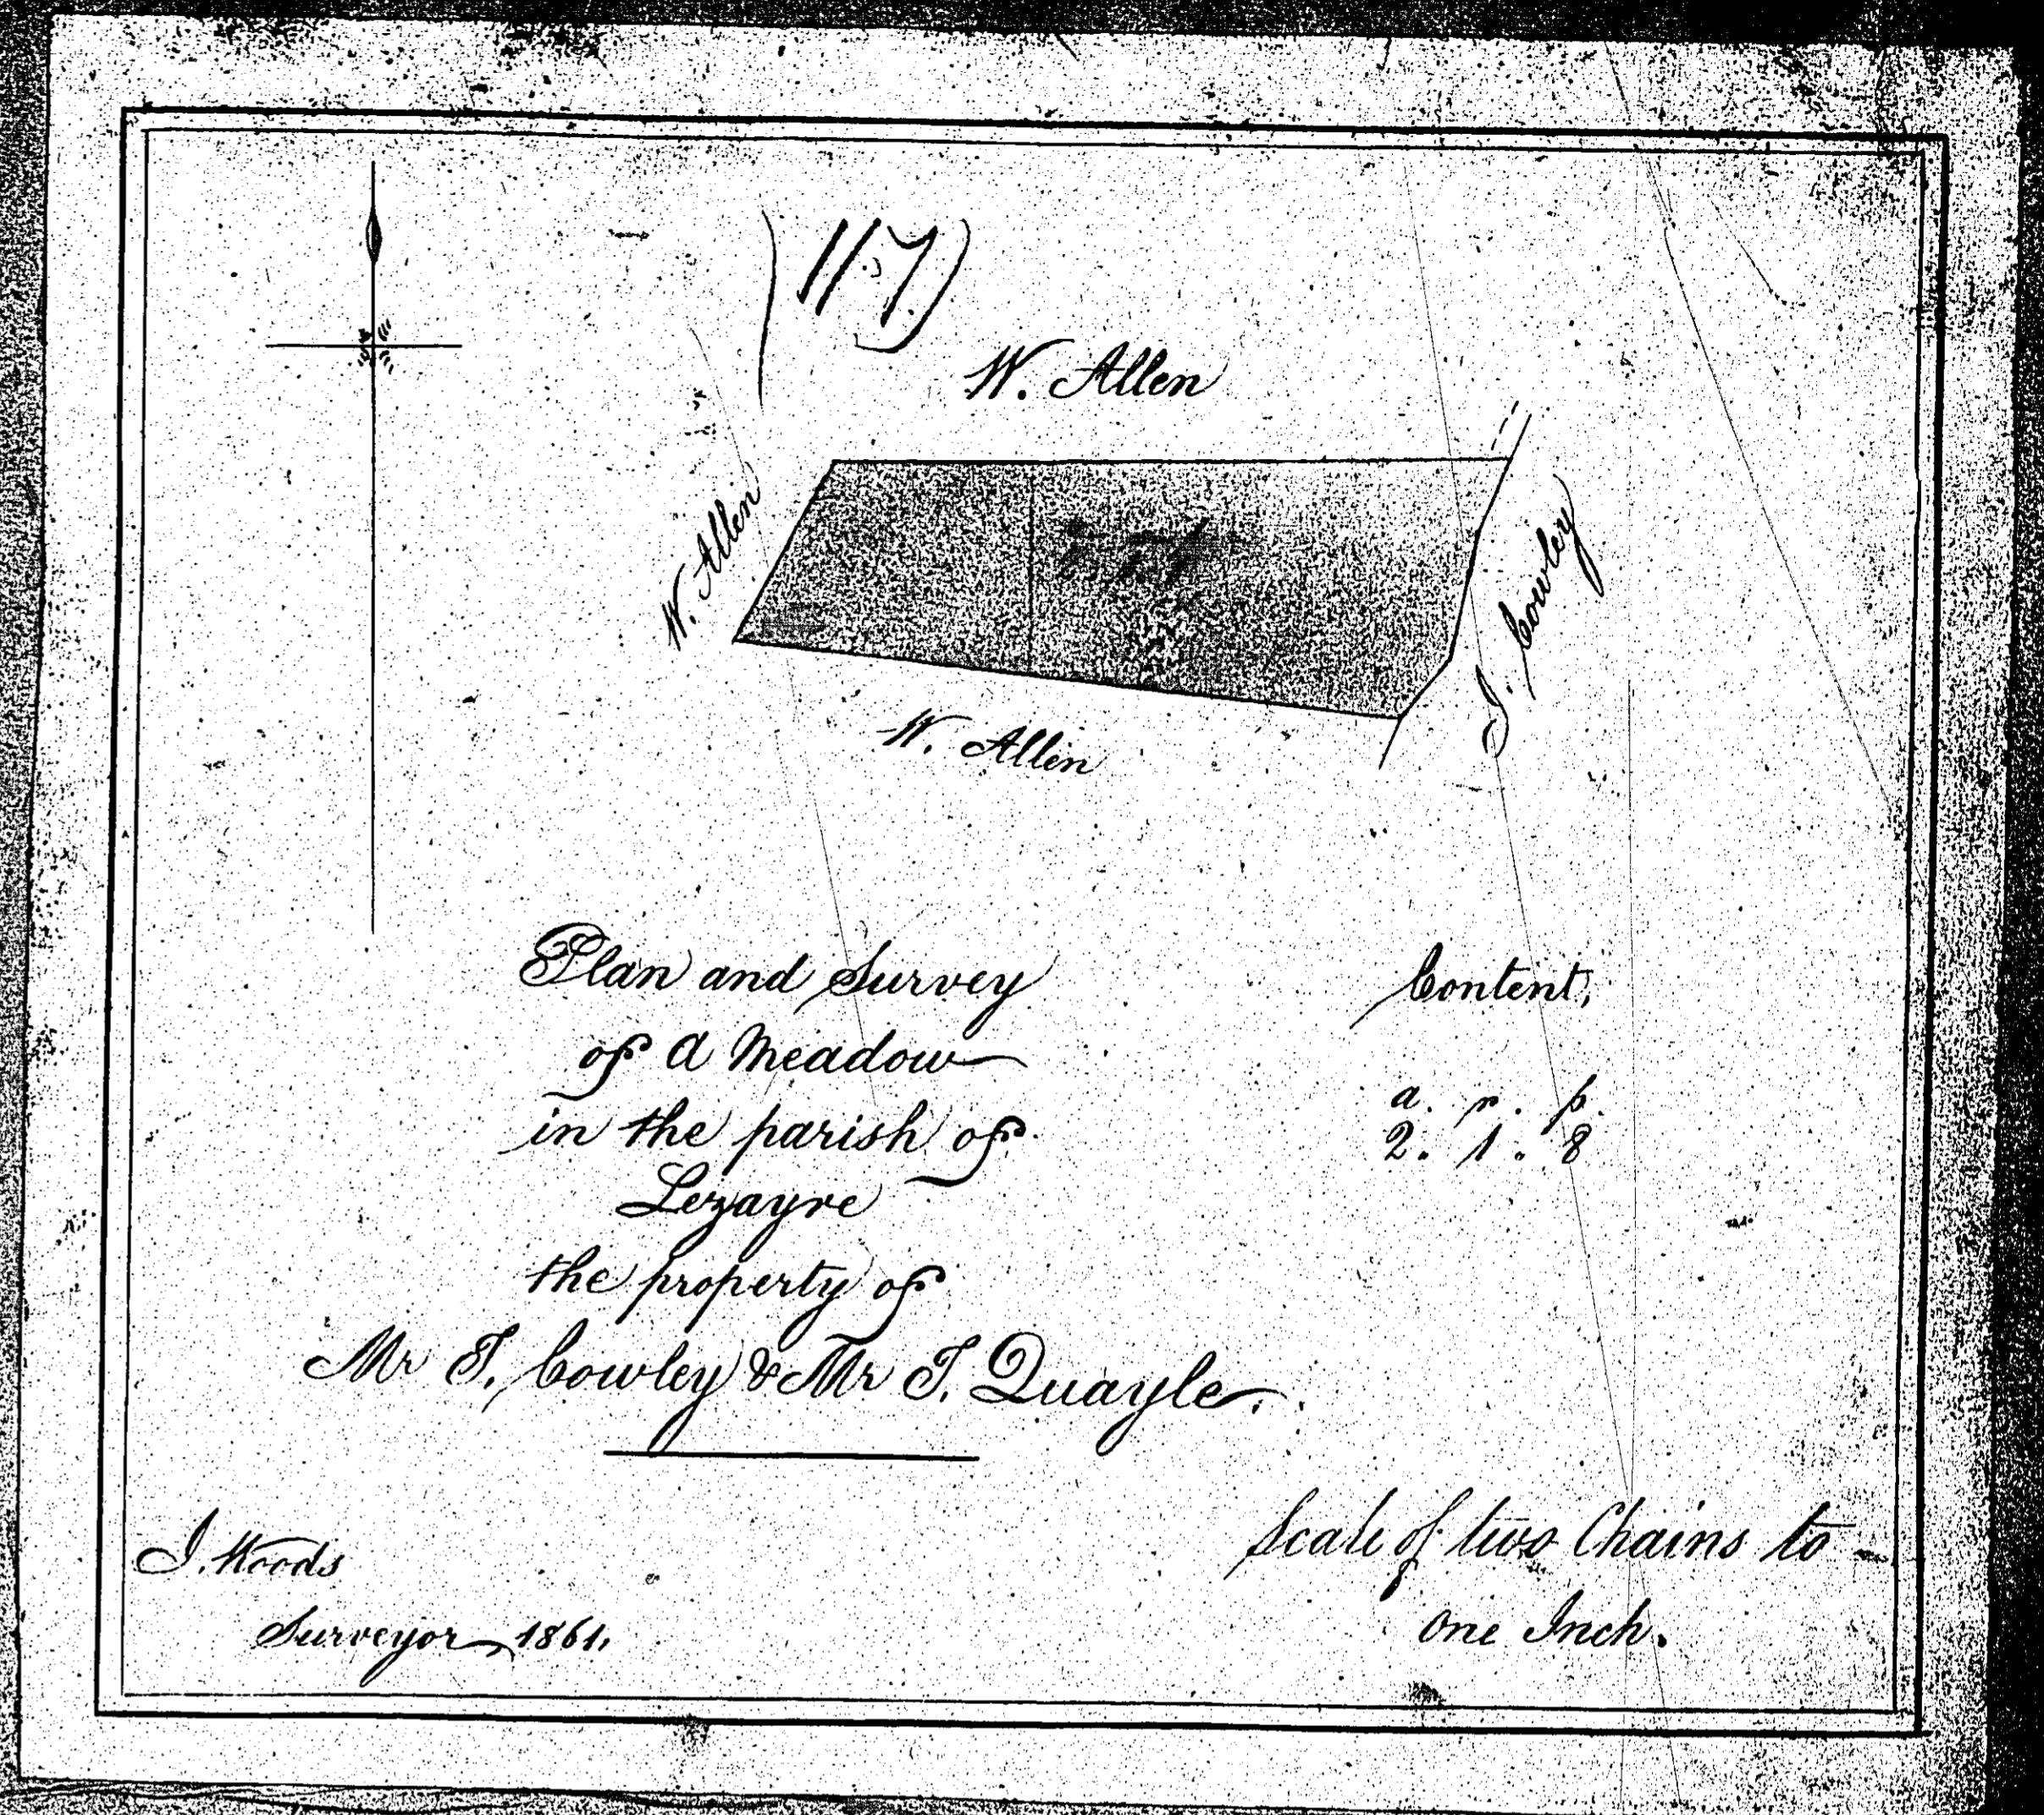 (117)
W. Allen
W. Allen
J. Cowley
W. Allen
Plan and Survey
of a Meadow
in the parish of
Lezayre
the property of
Mr T. Cowley & Mr T. Quayle.
Content,
a. r. p.
2. 1. 8
J. Woods
Surveyor 1861,
Scale of two Chains to
one Inch.